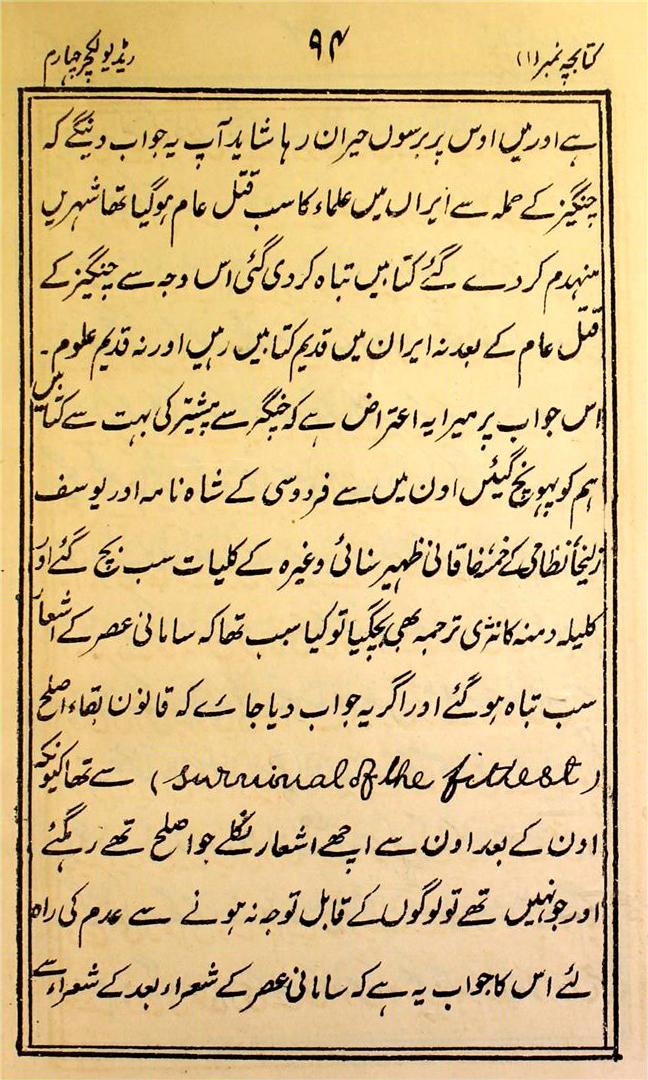 کتابچہ نمبر (۱)
۹۴
ریڈیو لکچر چہارم
ہے اور میں اوس پر برسوں حیران رہا شاید آپ یہ جواب دینگے کہ
چنگیز کے حملہ سے ایران میں علماء کا سب قتل عام ہوگیا تھا شہریں
منہدم کر دے گئے کتابیں تباہ کر دی گئی اس وجہ سے چنگیز کے
قتل عام کے بعد نہ ایران میں قدیم کتابیں رہیں اور نہ قدیم علوم ۔
اس جواب پر میرا یہ اعتراض ہے کہ چنگز سے پیشتر کی بہت سے کتابیں
ہم کو پہونچ گئیں اون میں سے فردوسی کے شاہ نامہ اور یوسف
زلیخا نظامی کے خمسہ خاقانی ظہیر سنائی وغیرہ کے کلیات سب بچ گئے اور
کلیلہ دمنہ کا نثری ترجمہ بھی بچگیا تو کیا سبب تھا کہ سامانی عصر کے اشعار
سب تباہ ہو گئے اور اگر یہ جواب دیا جاے کہ قانون بقاء اصلح
(survival of the fittest) سے تھا کیونکہ
اون کے بعد اون سے اچھے اشعار نکلے جو اصلح تھے رہگئے
اور جو نہیں تھے تو لوگوں کے قابل توجہ نہ ہونے سے عدم کی راہ
لئے اس کا جواب یہ ہے کہ سامانی عصر کے شعراء بعد کے شعراء سے